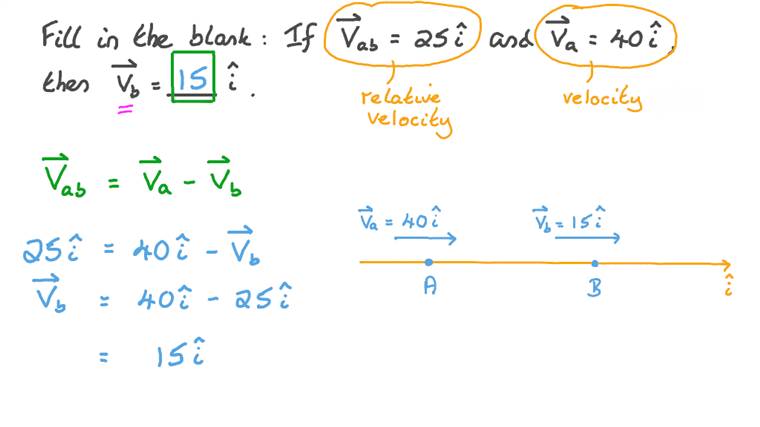 Fill in the blank : If V⃗ab = 25î and V⃗a = 40î,
then V⃗b = 15 î .
relative
velocity
velocity
V⃗ab = V⃗a - V⃗b
25î = 40î - V⃗b
V⃗b = 40î - 25î
= 15î
V⃗a = 40î
V⃗b = 15î
A
B
î